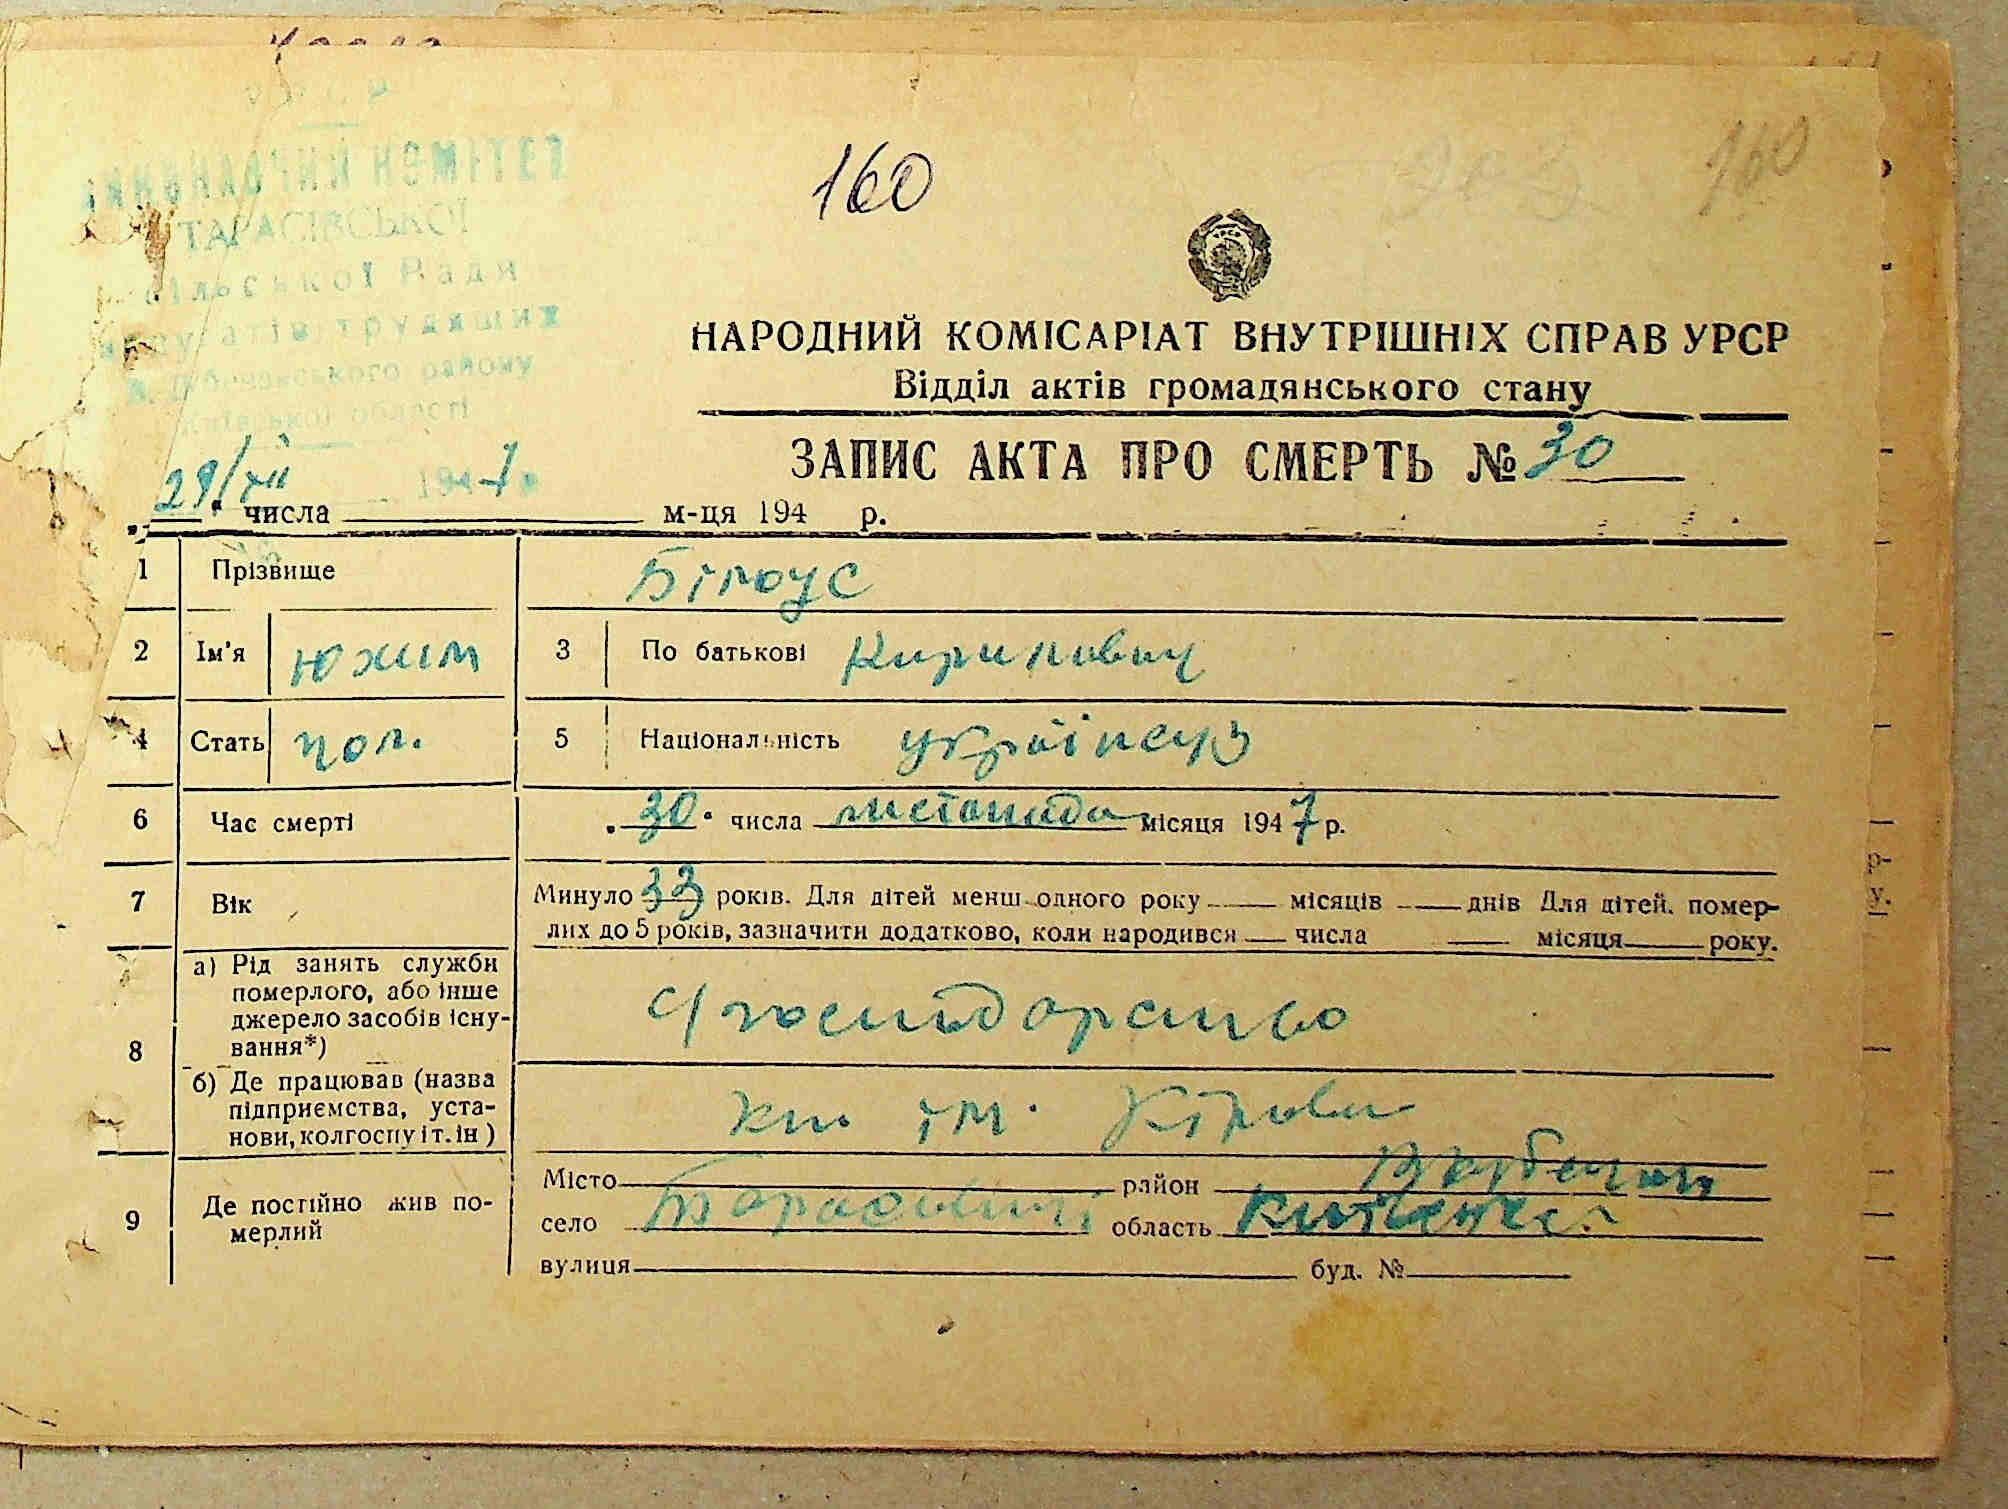 160
160
УРСР
ВИКОНАВЧИЙ КОМІТЕТ
ТАРАСІВСЬКОЇ
сільської Ради
депутатів трудящих
області
НАРОДНИЙ КОМІСАРІАТ ВНУТРІШНІХ СПРАВ УРСР
Відділ актів громадянського стану
ЗАПИС АКТА ПРО СМЕРТЬ № 30
29/XII 1947 р
числа м-ця 194 р.
1 Прізвище Білоус
2 Ім'я Юхим 3 По батькові Кирилович
4 Стать чол. 5 Національність українець
6 Час смерті „30" числа листопада місяця 1947 р.
7 Вік Минуло 33 років. Для дітей менш одного року — місяців — днів Для дітей, помер-
лих до 5 років, зазначити додатково, коли народився — числа — місяця — року.
8 а) Рід занять служби
померлого, або інше
джерело засобів існу-
вання*)
с/господарство
б) Де працював (назва
підприємства, уста-
нови, колгоспу і т. ін )
їм. Кірова
9 Де постійно жив по-
мерлий
Місто район
село область Київська
вулиця буд. №
р-
у.